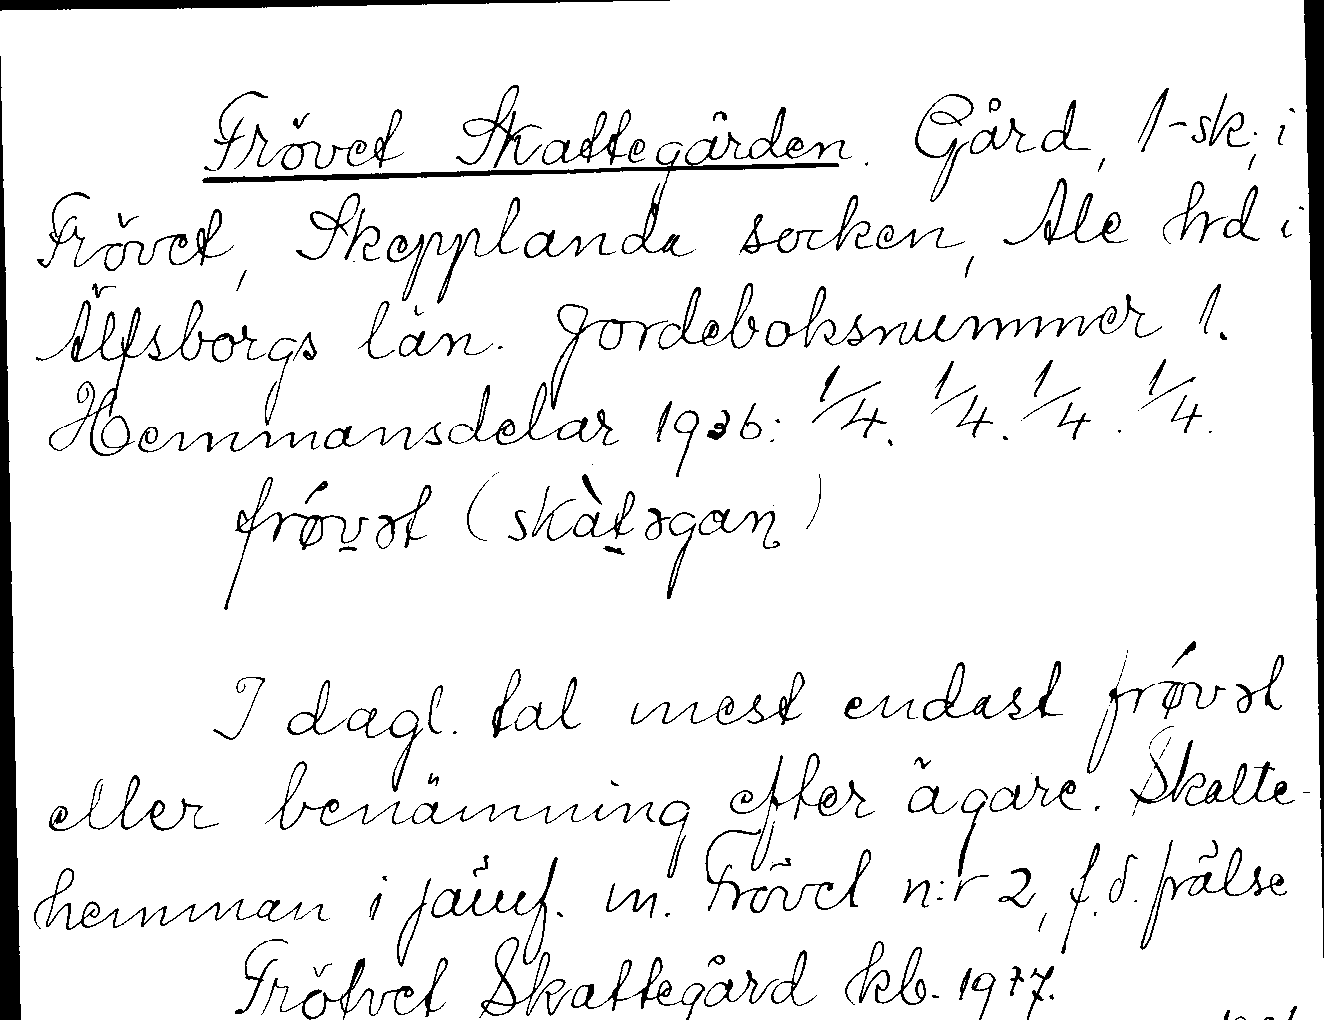 Frövet Skattegården. Gård, 1-sk; i
Frövet, Skepplanda socken, Ale hrd i
Älfsborgs län. Jordeboksnummer 1.
Hemmansdelar 1936: 1/4. 1/4. 1/4. 1/4.
frǿvət (skàtəgaɳ)
I dagl. tal mest endast frǿvət
eller benämning efter ägare. Skatte-
hemman i jämf. m. Frövet n:r 2, f.d. frälse
Frötvet Skattegård kb. 1977.